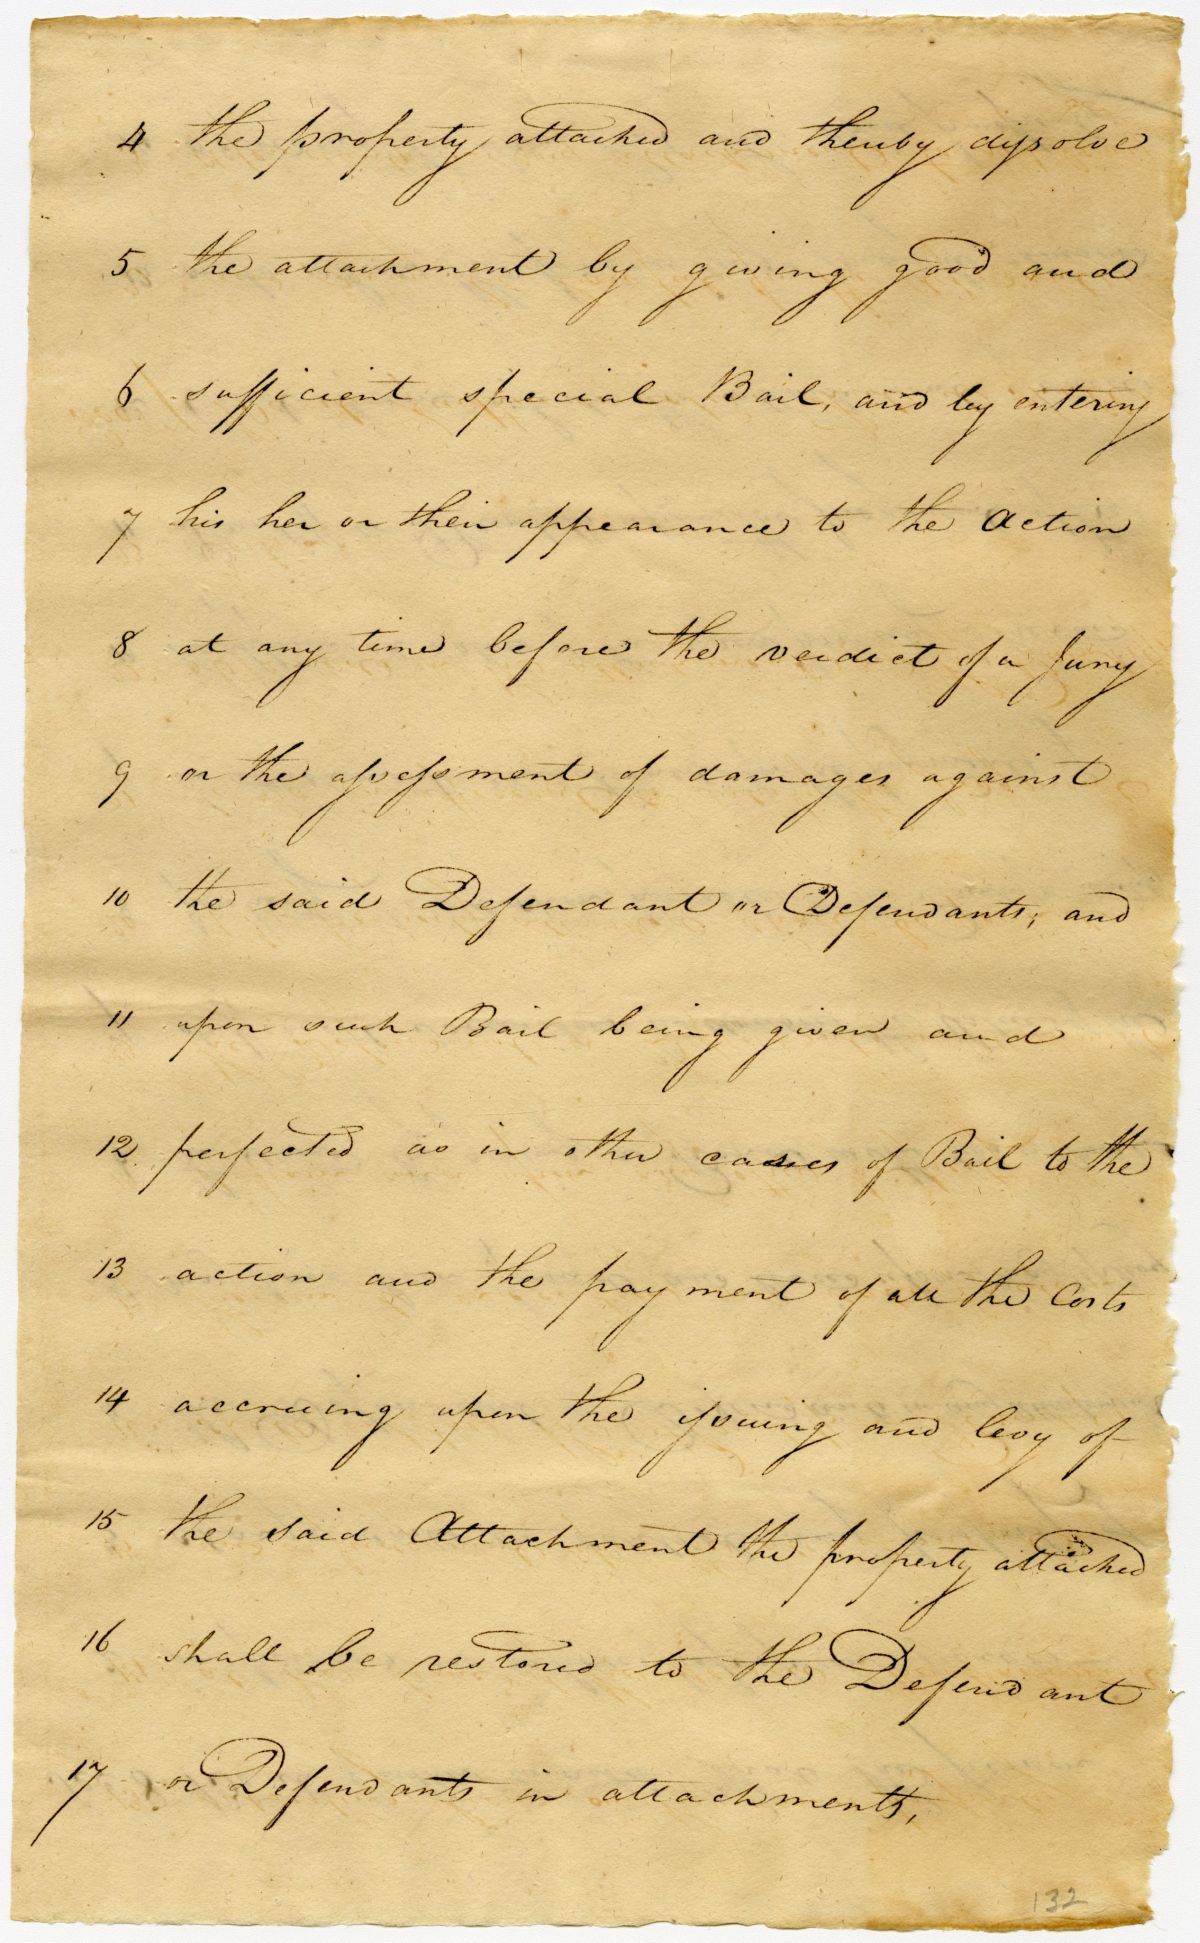 4 the property attached and thereby dissolve
5 the attachment by giving good and
6 sufficient special Bail, and by entering
7 his her or their appearance to the action
8 at any time before the verdict of a Jury
9 or the assessment of damages against
10 the said Defendant or Defendants; and
11 upon such Bail being given and
12 perfected as in other cases of Bail to the
13 action and the payment of all the Costs
14 accruing upon the issuing and levy of
15 the said Attachment the property attached
16 shall be restored to the Defendant
17 or Defendants in attachments,
132